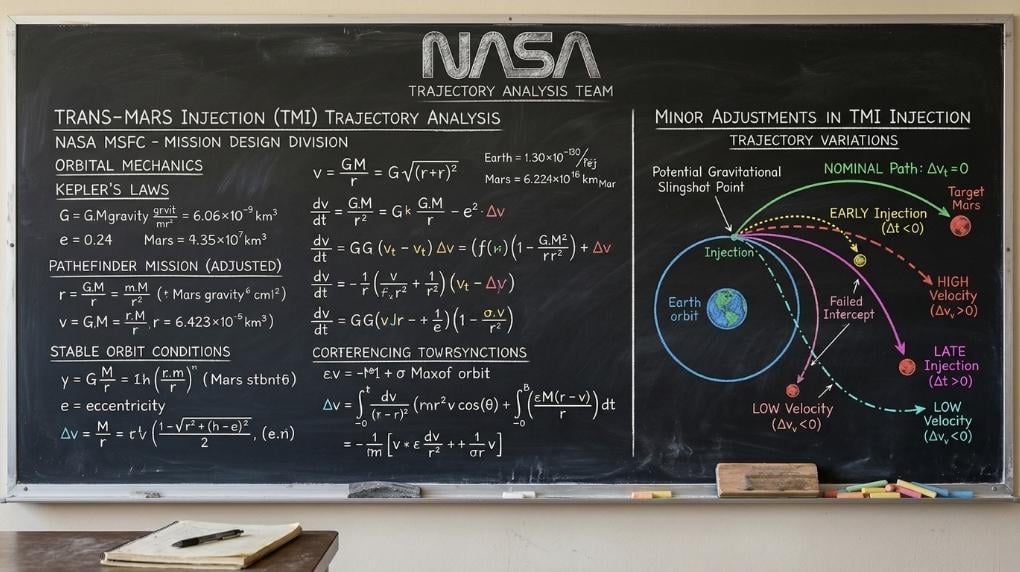 NASA
TRAJECTORY ANALYSIS TEAM
TRANS-MARS INJECTION (TMI) TRAJECTORY ANALYSIS
NASA MSFC - MISSION DESIGN DIVISION
ORBITAL MECHANICS
KEPLER'S LAWS
G = G.Mgravity grvit/mr² = 6.06×10⁻⁹ km³
e = 0.24 Mars = 4.35×10⁷km³
PATHFINDER MISSION (ADJUSTED)
r = G.M/r = m.M/r² ( Mars gravity⁶ cm1²)
v = G,M = r.M/r, r = 6.423×10⁻⁵km³)
STABLE ORBIT CONDITIONS
y = G M/r = 1h (r.m/r)ⁿ (Mars stbnt6)
e = eccentricity
Δv = M/r = (1-√r²+(h-e)²/2), (e.n)
v = GM/r = G√(r+r)²
Earth = 1.30×10⁻¹³⁰/
Mars = 6.224×10¹⁶ km Mar
dv/dt = G.M/r² = Gk G.M/r - e²·Δv
dv/dt = GG (vt - vt) Δv = (f()(1-G.M²/rr²) + Δv
dv/dt = -1/r (v/r² + 1/r²) (vt - Δv)
dv/dt = GG(vJr - + 1/e)(1 - σ.v/r²)
CORTERENCING TOWRSYNCTIONS
ε.v = + σ Maxof orbit
Δv = ∫ dv/(r-r)² (mr²v cos(θ) + ∫ (εM(r-v)/r) dt
= -1/m [v * ε dv/r² ++ 1/σr v]
MINOR ADJUSTMENTS IN TMI INJECTION
TRAJECTORY VARIATIONS
Potential Gravitational
Slingshot Point
NOMINAL Path: Δvt = 0
Target
Mars
EARLY Injection
(Δt<0)
Injection
HIGH
Velocity
(Δvv>0)
Earth
orbit
Failed
Intercept
LATE
Injection
(Δt>0)
LOW Velocity
(Δvv<0)
LOW
Velocity
(Δvv<0)